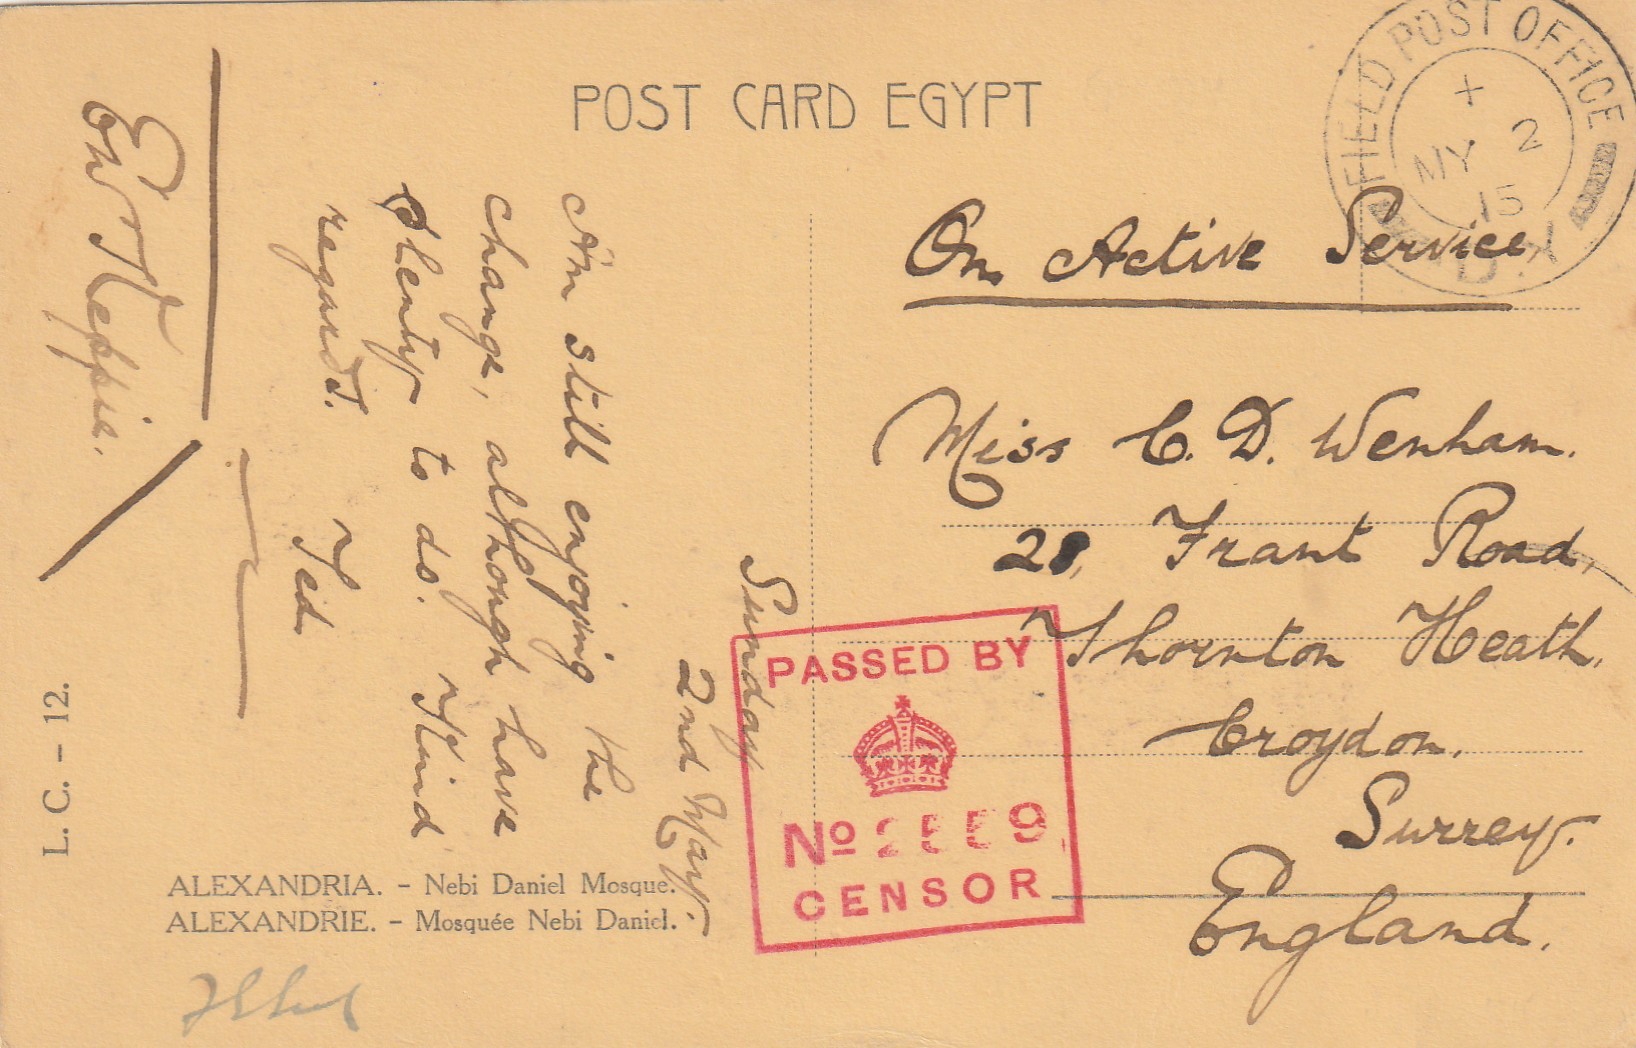 POST CARD EGYPT
FIELD POST OFFICE
+
MY 2
15
On Active Service
Miss C. D. Wenham.
28, Frant Road,
Thornton Heath,
Croydon.
Surrey.
England.
Sunday
2nd May.
Am still enjoying the
change, although have
plenty to do. Kind
regards. Ted
PASSED BY
No 2559
CENSOR
ALEXANDRIA. - Nebi Daniel Mosque.
ALEXANDRIE. - Mosquée Nebi Daniel.
L. C. - 12.